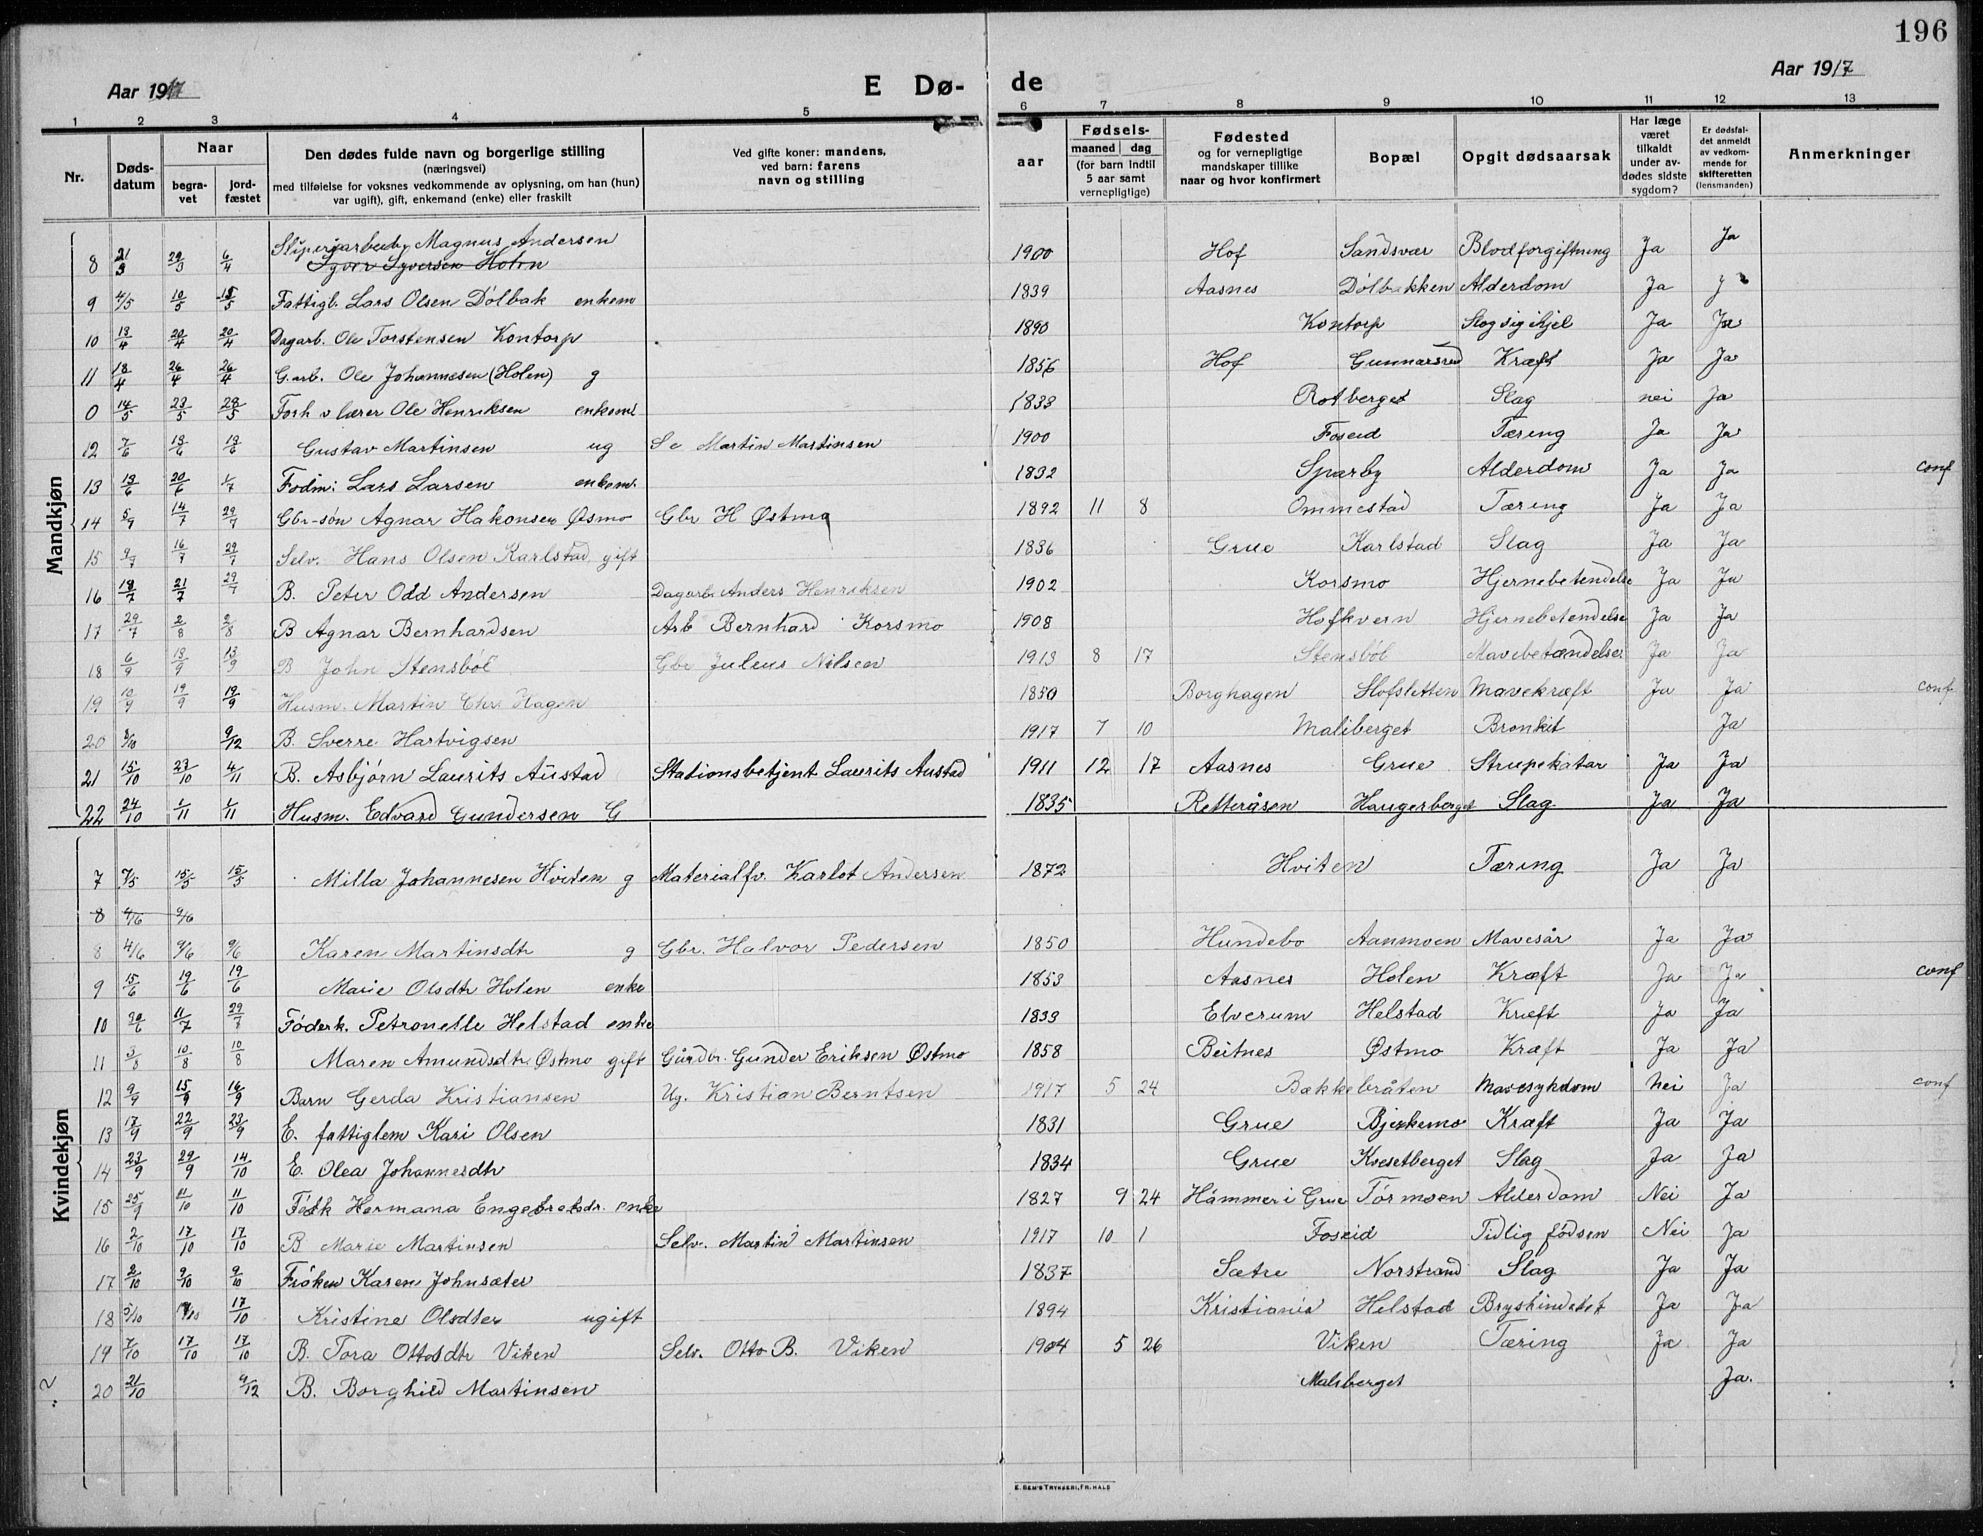 196
Aar 1917
E Dø- de
Aar 1917
1 2 3 4 5 6 7 8 9 10 11 12 13
Nr.
Døds-datum
Naar
begra-vet
jord-fæstet
Den dødes fulde navn og borgerlige stilling
(næringsvei)
med tilføielse for voksnes vedkommende av oplysning, om han (hun)
var ugift), gift, enkemand (enke) eller fraskilt
Ved gifte koner: mandens,
ved barn: farens
navn og stilling
Fødsels-
aar
maaned dag
(for barn indtil
5 aar samt
vernepligtige)
Fødested
og for vernepligtige
mandskaper tillike
naar og hvor konfirmert
Bopæl
Opgit dødsaarsak
Har læge
været
tilkaldt
under av-
dødes sidste
sygdom?
Er dødsfal-
det anmeldt
av vedkom-
mende for
skifteretten
(lensmanden)
Anmerkninger
Mandkjøn
8 21/3 29/3 6/4 Sliperiarbeid. Magnus Andersen 1900 Hof Sandsvær Blodforgiftning Ja Ja
Syver Syversen Holm
9 4/5 10/5 15/5 Fattigb. Lars Olsen Dölbak enkem 1839 Aasnes Dölbakken Alderdom Ja J
10 13/4 20/4 20/4 Dagarb. Ole Torstensen Kontorp 1890 Kontorp Slog sig ihjel Ja Ja
11 18/4 26/4 26/4 G.arb. Ole Johannesen (Holen) g 1856 Hof Gunnarsrud Kræft Ja Ja
0 14/5 23/5 28/5 Forh v lærer Ole Henriksen enkem 1833 Rotberget Slag nei Ja
12 7/6 13/6 13/6 Gustav Martinsen ug Se Martin Martinsen 1900 Foseid Tæring Ja Ja
13 13/6 20/6 1/7 Födm: Lars Larsen enkem. 1832 Sparby Alderdom Ja Ja conf
14 5/7 14/7 29/7 Gbr-søn Agnar Hakonsen Østmo Gbr H Østmo 1892 11 8 Ommestad Tæring Ja Ja
15 9/7 16/7 29/7 Selv. Hans Olsen Karlstad gift 1836 Grue Karlstad Slag Ja Ja
16 18/7 21/7 29/7 B. Peter Odd Andersen Dagarb. Anders Henriksen 1902 Korsmo Hjernebetendelse Ja Ja
17 29/7 2/8 2/8 B Agnar Bernhardsen Arb Bernhard Korsmo 1908 Hofkvern Hjernebetendelse Ja Ja
18 6/9 13/9 13/9 B John Stensböl Gbr Juleus Nilsen 1913 8 17 Stensböl Mavebetændelse Ja Ja
19 10/9 19/9 19/9 Husm. Martin Chr. Hagen 1850 Borghagen Slofsletten Mavekræft Ja Ja conf
20 3/10 9/12 B. Sverre Hartvigsen 1917 7 10 Maliberget Bronkit Ja
21 15/10 23/10 4/11 B. Asbjørn Laurits Austad Stationsbetjent Laurits Austad 1911 12 17 Aasnes Grue Strupekatar Ja Ja
22 24/10 1/11 1/11 Husm. Edvard Gundersen G 1835 Retteråsen Haugerberget Slag Ja Ja
Kvindekjøn
7 7/5 15/5 15/5 Milla Johannesen Hviten g Materialfv. Karlot Andersen 1872 Hviten Tæring Ja Ja
8 4/6 9/6
8 4/6 9/6 9/6 Karen Martinsdtr g Gbr. Halvor Pedersen 1850 Hundebo Aanmoen Mavesår Ja Ja
9 15/6 19/6 19/6 Marie Olsdtr Holen enke 1853 Aasnes Holen Kræft Ja Ja conf
10 30/6 11/7 29/7 Föderk. Petronelle Helstad enke 1833 Elverum Helstad Kræft Ja Ja
11 3/8 10/8 10/8 Maren Amundsdtr. Østmo gift Gårdbr. Gunder Eriksen Østmo 1858 Beitnes Østmo Kræft Ja Ja
12 9/9 15/9 16/9 Barn Gerda Kristiansen Ug. Kristian Berntsen 1917 5 24 Bækkebråten Mavesykdom Nei Ja conf
13 17/9 22/9 23/9 E. fattiglem Kari Olsen 1831 Grue Bjerkemo Kræft Ja Ja
14 23/9 29/9 14/10 E. Olea Johannesdtr 1834 Grue Kvesetberget Slag Ja Ja
15 25/9 11/10 11/10 Födk Hermana Engebretsdr. enke 1827 9 24 Hammer i Grue Törmoen Alderdom Nei Ja
16 2/10 17/10 17/10 B Marie Martinsen Selv. Martin Martinsen 1917 10 1 Foseid Tidlig födsen Nei Ja
17 2/10 9/10 9/10 Fröken Karen Johnsæter 1837 Sætre Norstrand Slag Ja Ja
18 5/10 17/10 Kristine Olsdter ugift 1894 Kristiania Helstad Brysthindebet Ja Ja
19 7/10 17/10 17/10 B. Tora Ottosdtr Viken Selv. Otto B. Viken 1904 5 26 Viken Tæring Ja Ja
20 21/10 9/12 B. Borghild Martinsen Maliberget Ja.
E. SEM'S TRYKKERI, FR. HALD